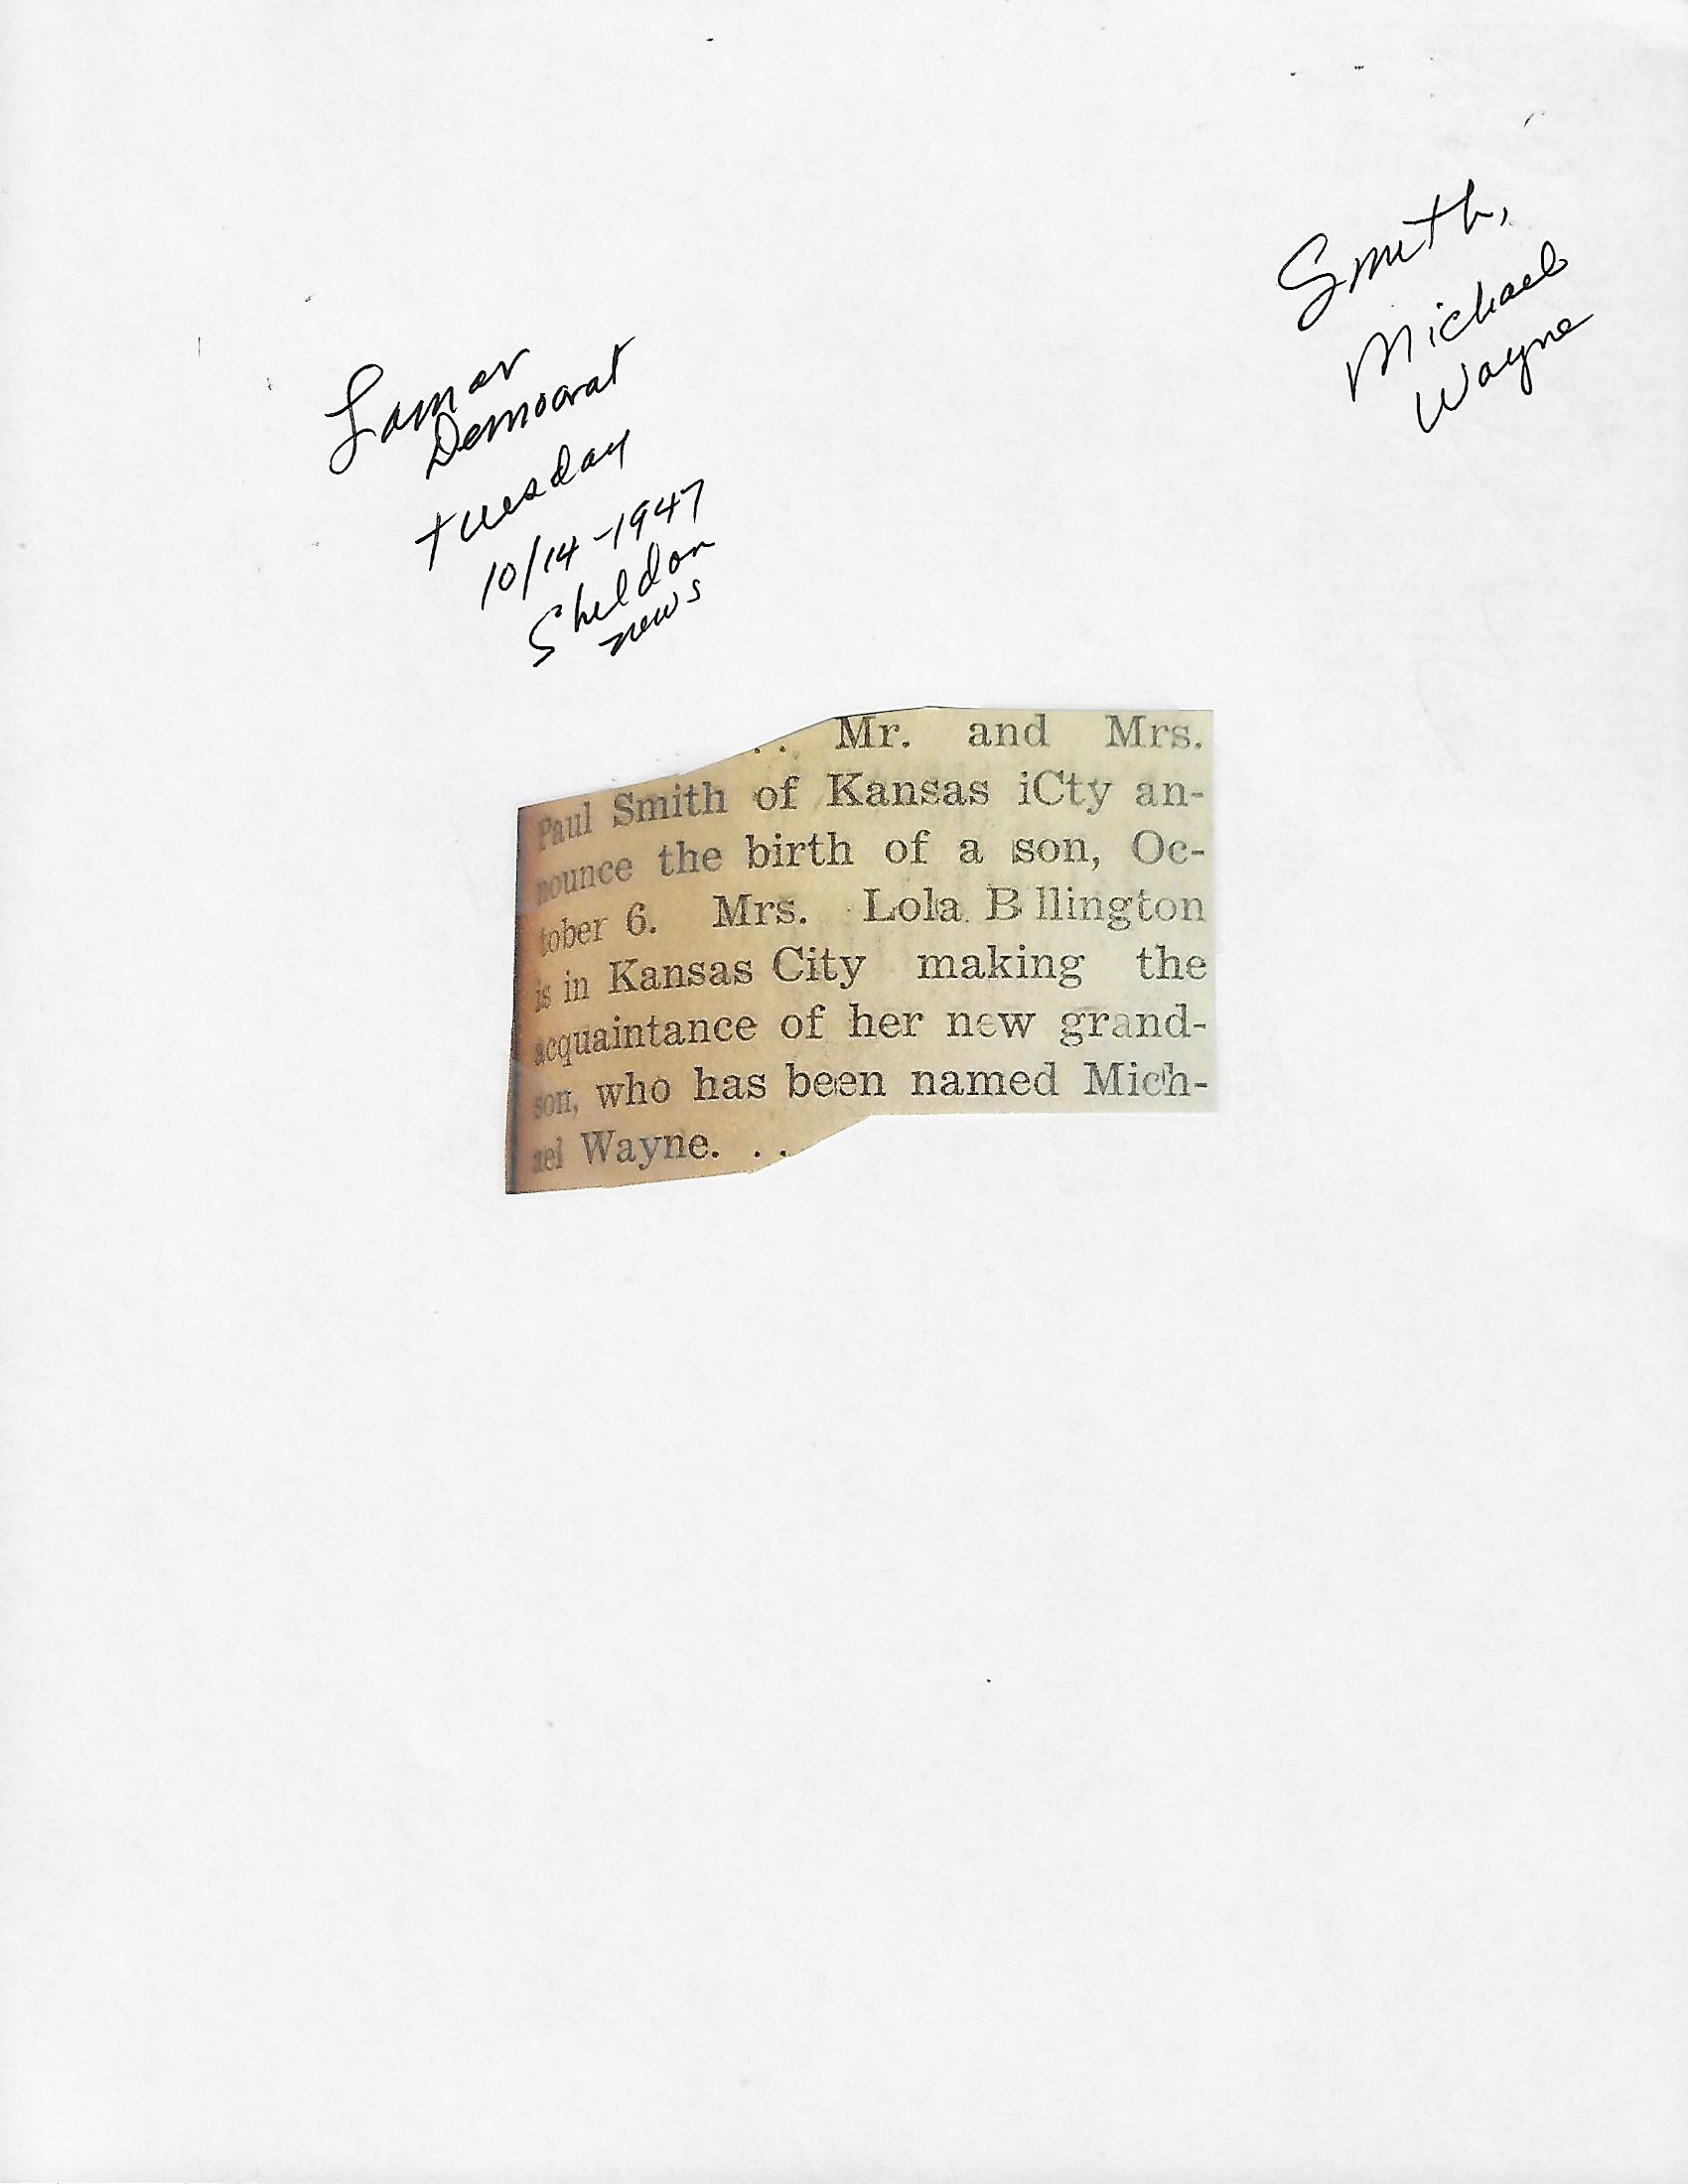 Smith,
Michael
Wayne
Lamar
Democrat
Tuesday
10/14-1947
Sheldon
news
.. Mr. and Mrs.
Paul Smith of Kansas iCty an-
nounce the birth of a son, Oc-
tober 6. Mrs. Lola B llington
is in Kansas City making the
acquaintance of her new grand-
son, who has been named Mich-
ael Wayne. ..